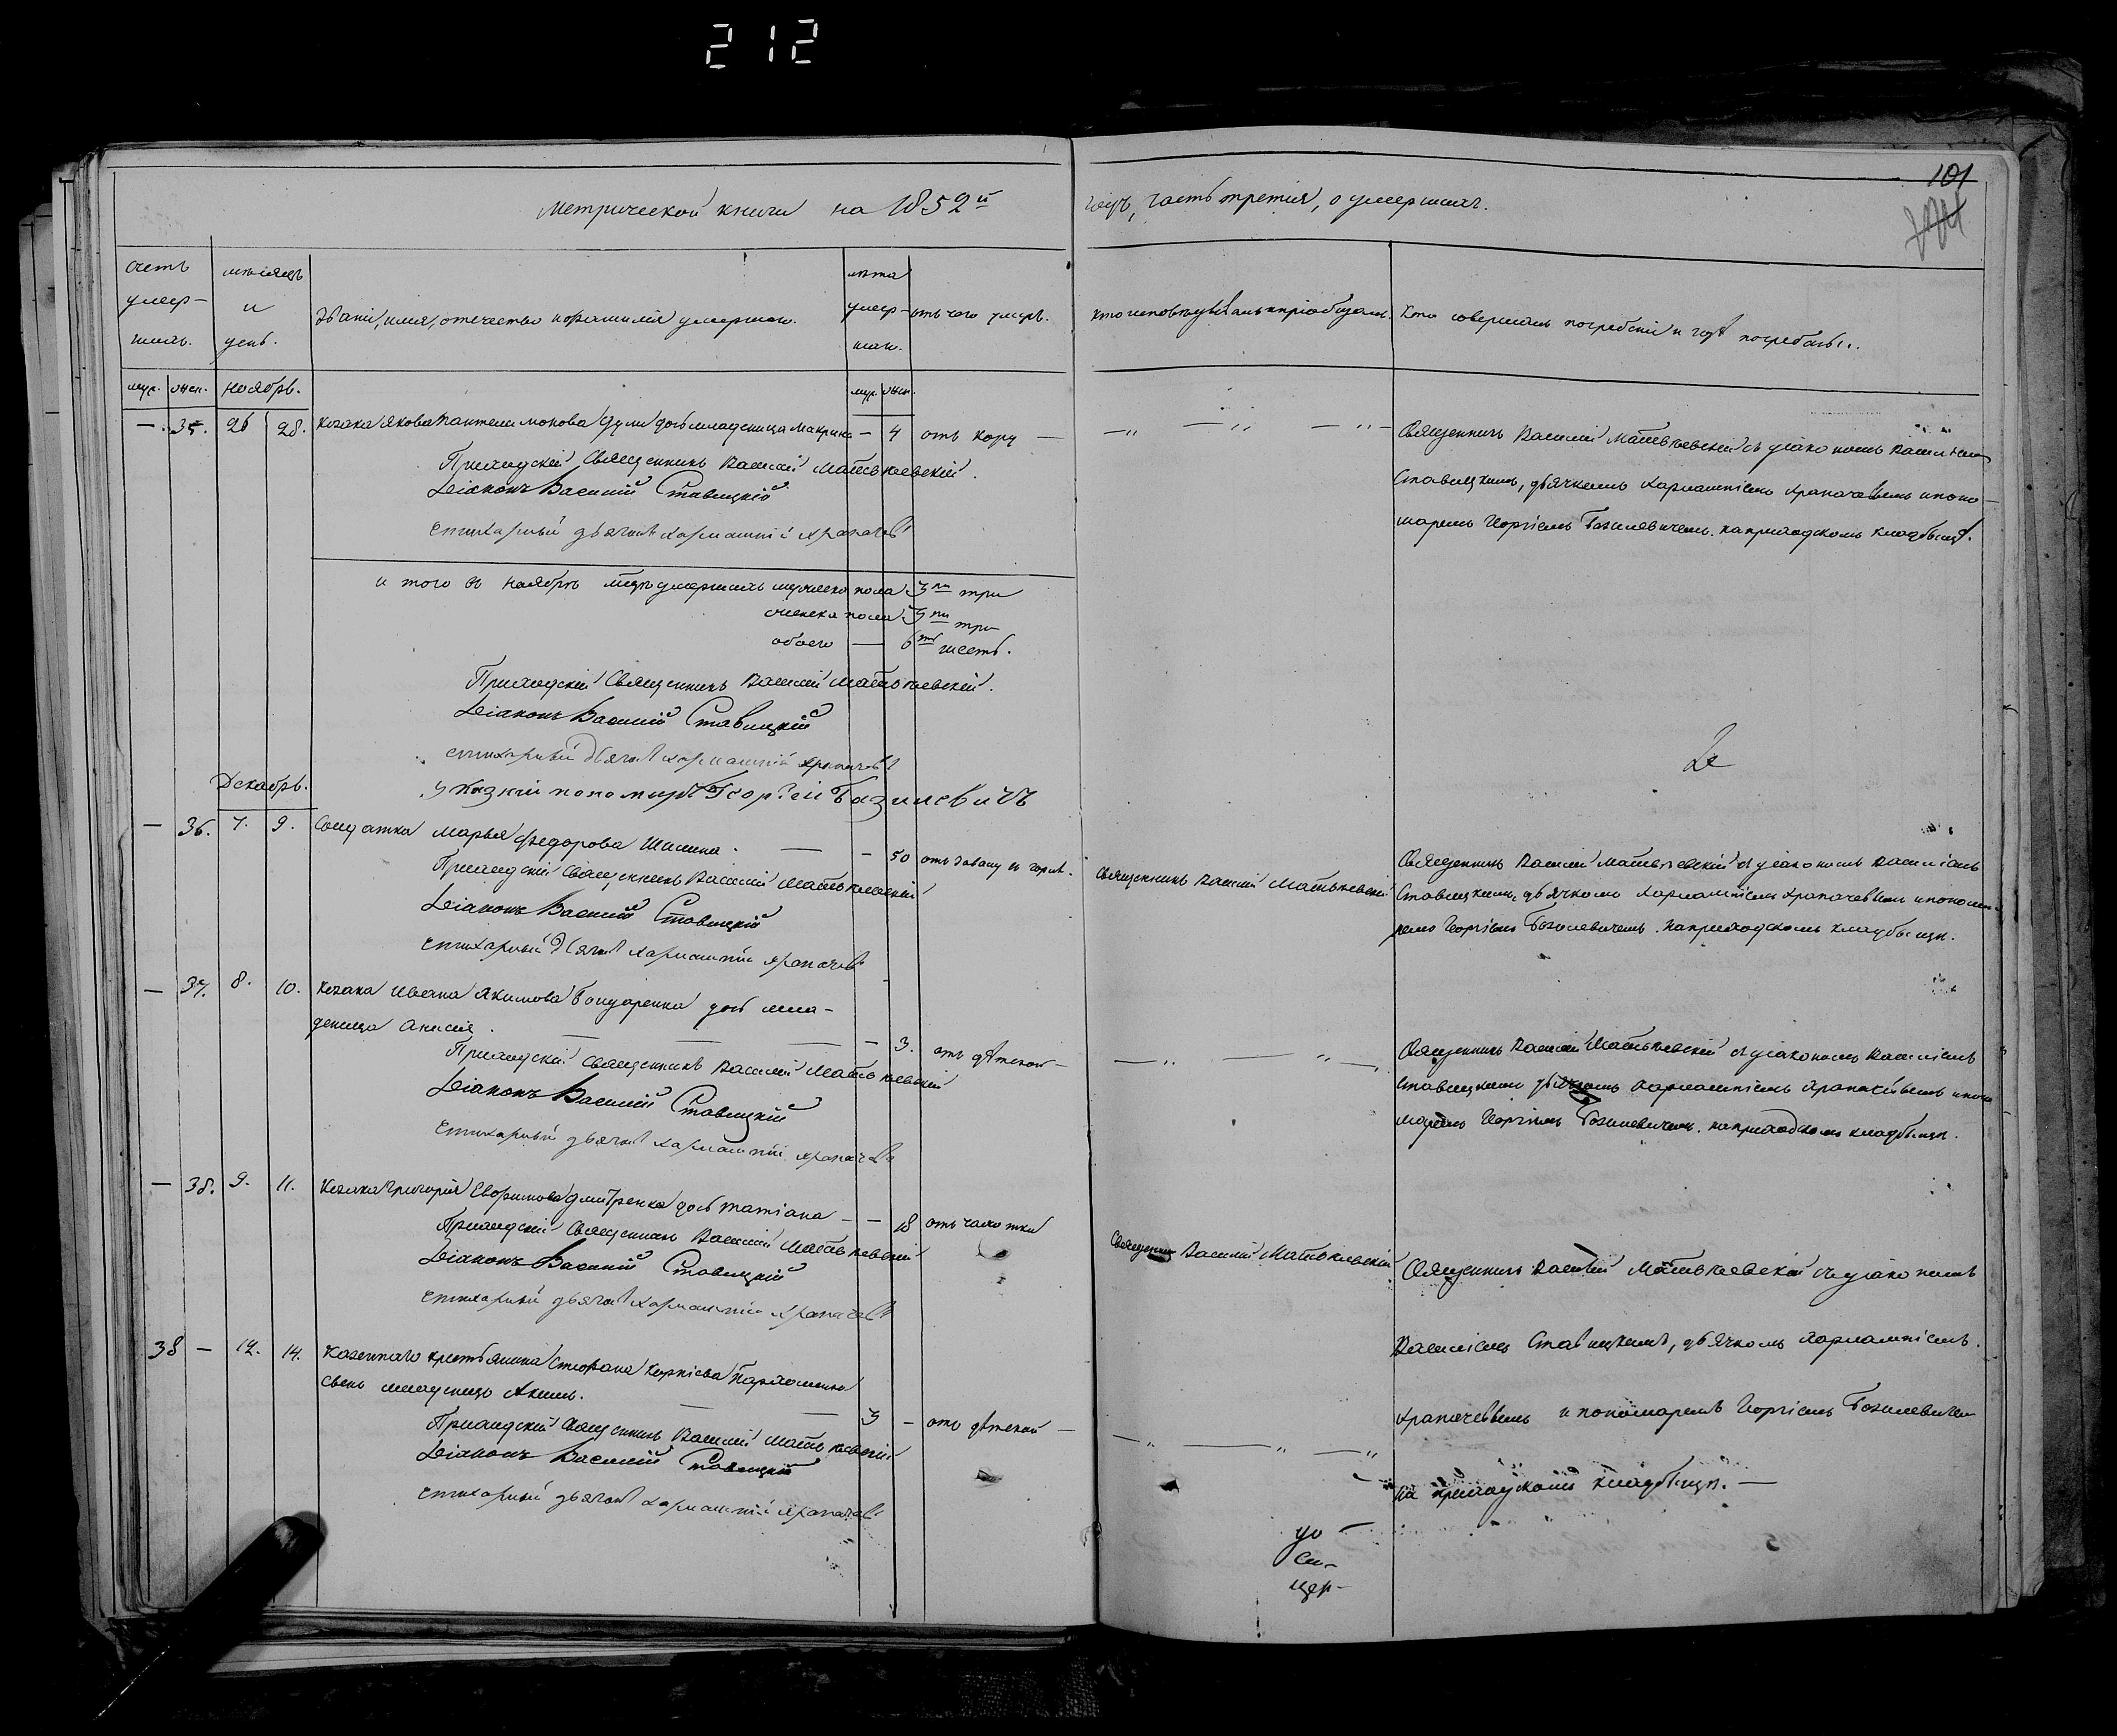 212
101
Метрической книги на 1852й
годъ, часть третія, о умершихъ.
счетъ
умер-
шихъ.
мѣсяцъ
и
день.
Званіе, имя, отечество и фамилія умершаго.
лѣта
умер-
шаго.
отъ чего умеръ.
кто исповѣдывалъ и пріобщалъ.
Кто совершалъ погребеніе и гдѣ погребены.
муж. жен. ноябрь. муж. жен.
— 35. 26 28. козака Якова Пантелимонова дочь младеница Макрина — 4 отъ кору —
Приходскій Священникъ Василій Матвѣевскій.
Діаконъ Василій Ставицкій
стихарный дьячокъ Харлампій Храпачевъ
Священникъ Василій Матвѣевскій съ діакономъ Василіемъ
Ставицкимъ, дьячкомъ Харлампіемъ Храпачевымъ и поно-
маремъ Георгіемъ Базилевичемъ. на приходскомъ кладбищѣ.
и того въ ноябрѣ мцѣ умершихъ мужеска пола 3ри три
женска пола 3ри три
обоего — 6ть шесть.
Приходскій Священникъ Василій Матвѣевскій.
Діаконъ Василій Ставицкій
стихарный дьячокъ Харлампій Храпачевъ
указній пономарь Георгій Базилевичъ
Декабрь.
— 36. 7. 9. Солдатка Марья Федорова Шилина. — — 50
Приходскій Священникъ Василій Матвѣевскій
Діаконъ Василій Ставицкій
стихарный дьячокъ Харлампій Храпачевъ
Священникъ Василій Матвѣевскій
Священникъ Василій Матвѣевскій съ діакономъ Василіемъ
Ставицкимъ, дьячкомъ Харлампіемъ Храпачевымъ и понома-
ремъ Георгіемъ Базилевичемъ. на приходскомъ кладбищѣ.
— 37. 8. 10. козака Ивана Якимова Бондаренка дочь мла-
деница Анисія. — — — — 3. отъ дѣтской —
Приходскій Священникъ Василій Матвѣевскій
Діаконъ Василій Ставицкій
стихарный дьячокъ Харлампій Храпачевъ
Священникъ Василій Матвѣевскій съ діакономъ Василіемъ
Ставицкимъ дьячкомъ Харлампіемъ Храпачевымъ и поно
маремъ Георгіемъ Базилевичемъ. на приходскомъ кладбищѣ.
— 38. 9. 11. козака Григорія Евфимова Дмитренка дочь Татіана — — 18 отъ чахотки
Приходскій Священникъ Василій Матвѣевскій
Діаконъ Василій Ставицкій
стихарный дьячокъ Харлампій Храпачевъ
Священникъ Василій Матвѣевскій
Священникъ Василій Матвѣевскій съ діакономъ
Василіемъ Ставицкимъ, дьячкомъ Харлампіемъ
Храпачевымъ и пономаремъ Георгіемъ Базилевичемъ
на приходскомъ кладбищѣ. —
38 — 12. 14. Казеннаго крестьянина Стефана Пархоменка
сынъ младенецъ Акимъ. — — 3 — отъ дѣтской —
Приходскій Священникъ Василій Матвѣевскій
Діаконъ Василій Ставицкій
стихарный дьячокъ Харлампій Храпачевъ